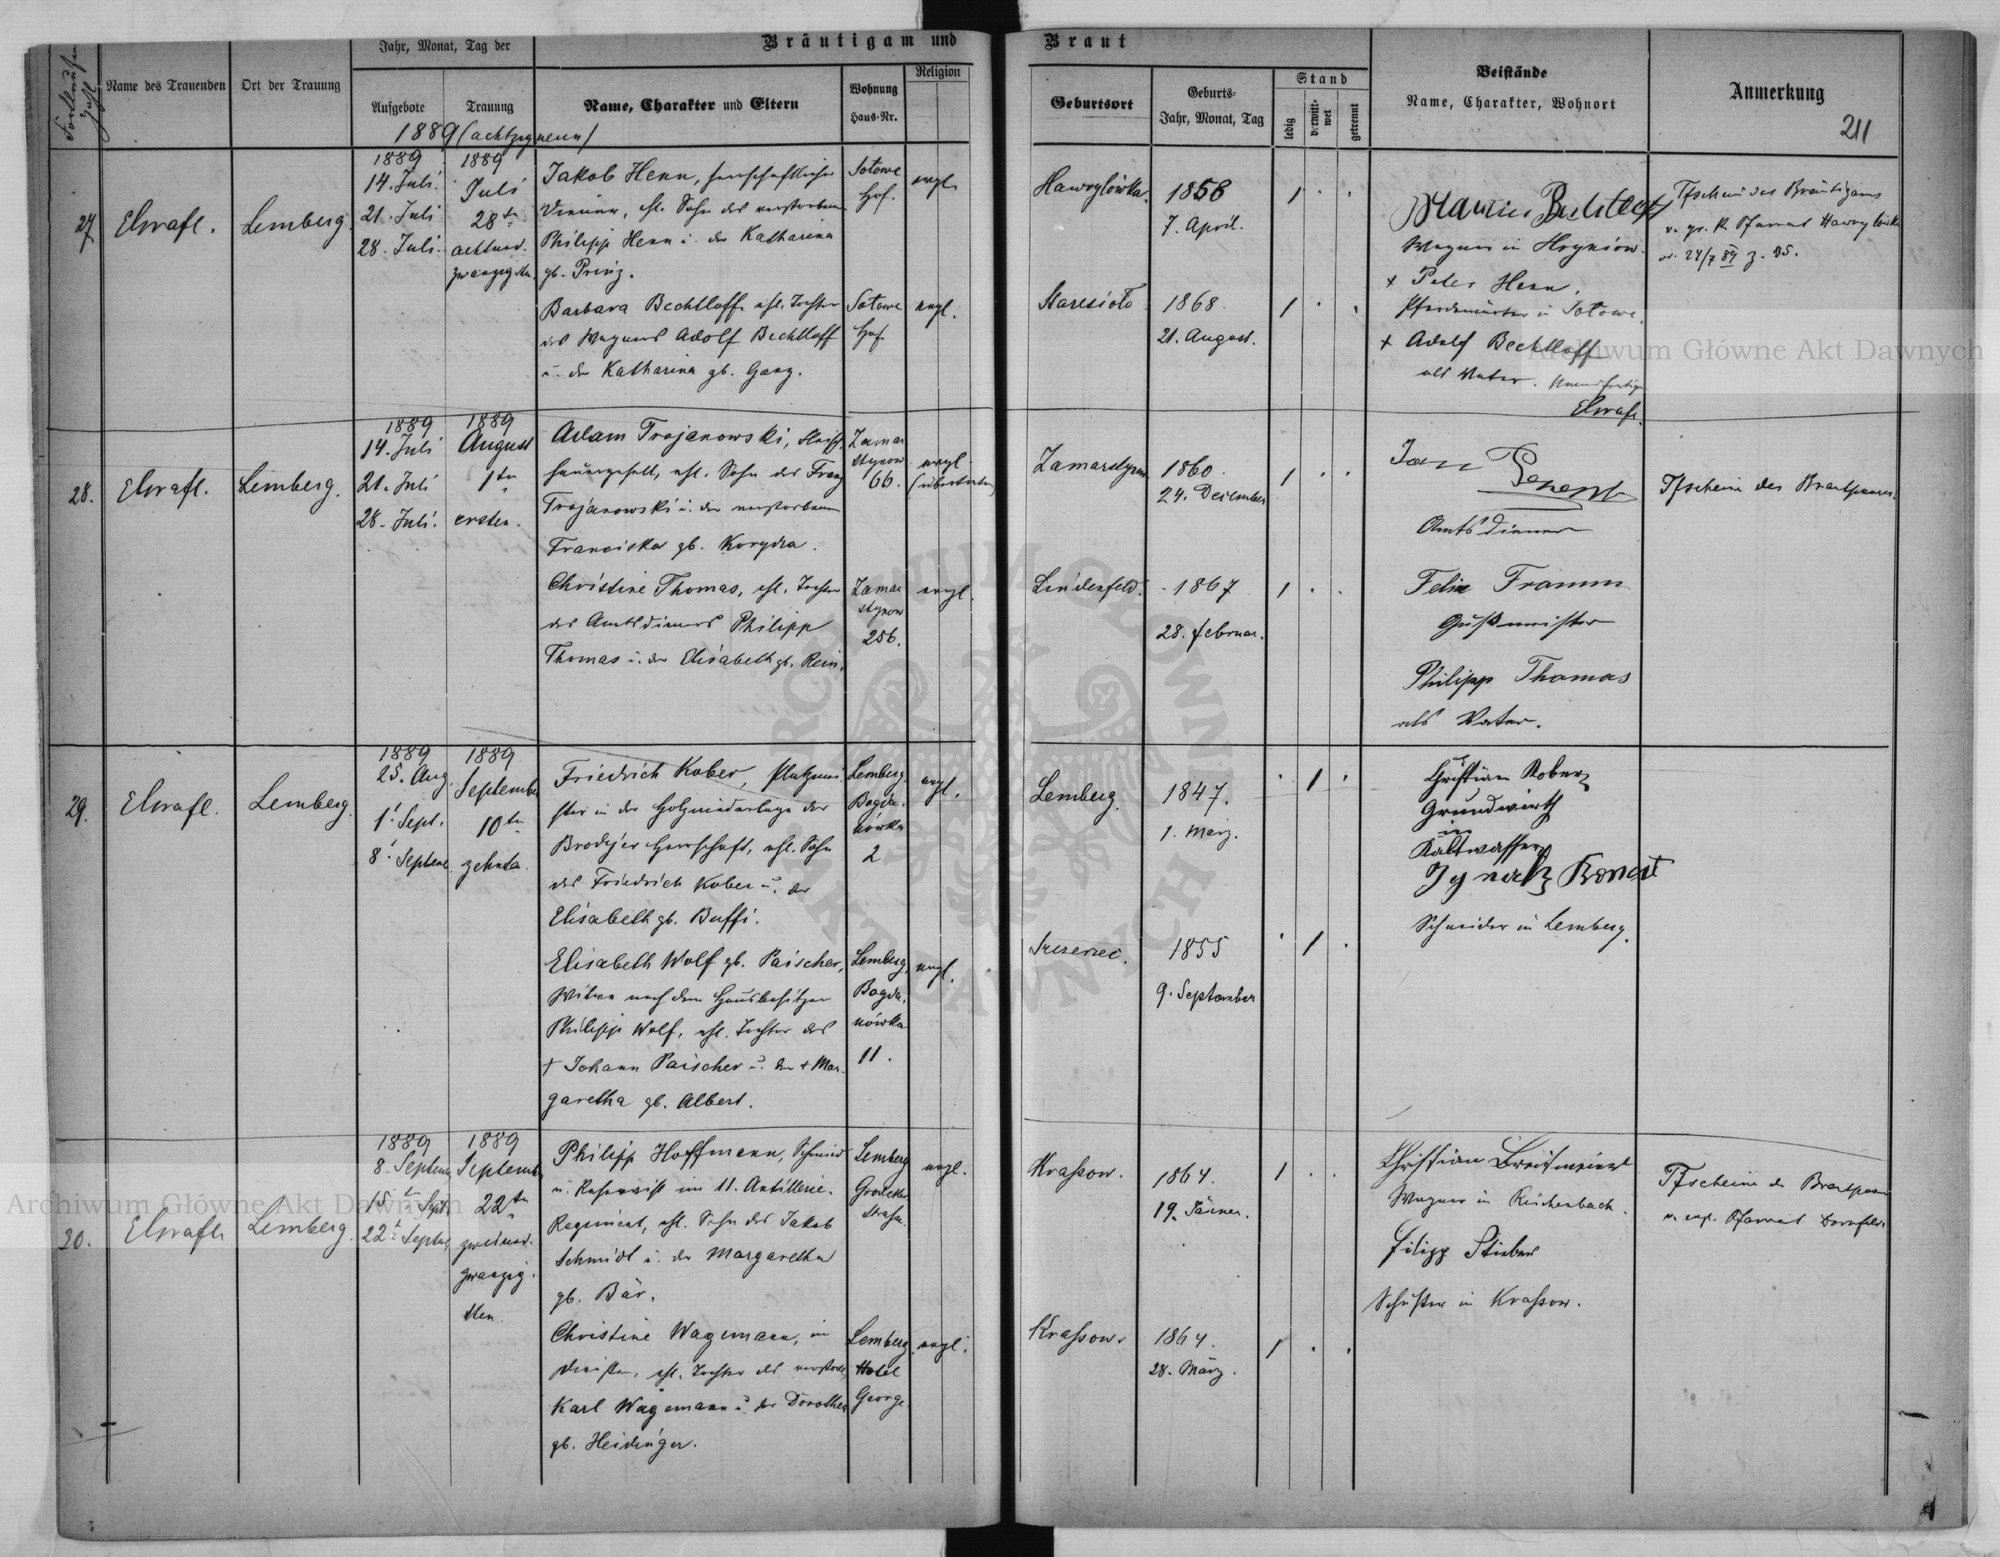 Fortlaufende Zahl
Name des Trauenden
Ort der Trauung
Jahr, Monat, Tag der
Aufgebote
Trauung
Bräutigam und Braut
Name, Charakter und Eltern
Wohnung
Haus-Nr.
Religion
Geburtsort
Geburts-
Jahr, Monat, Tag
Stand
ledig
verwitt-
wet
getrennt
Beistände
Name, Charakter, Wohnort
Anmerkung
211
1889 (achtzigneun)
27
Lemberg
1889
14. Juli
21. Juli
28. Juli
1889
Juli
28ten
achtund-
zwanzigsten
Jakob Henn, herrschaftlicher
Diener, ehl. Sohn des verstorbenen
Philipp Henn u. der Katharina
gb. Prinz.
Sotowe
Hof.
evgl.
Hawrylówka
1858
7. April.
Barbara Bechtloff ehl. Tochter
des Wagners Adolf Bechtloff
u. der Katharina gb. Ganz.
Sotowe
Hof
evgl.
Staresioło
1868
21. August.
Wagner in Hryniów.
+ Peter Henn,
Pferdewärter in Sotowe.
+ Adolf Bechtloff
als Vater.
Tfschein des Bräutigams
v. gr. k. Pfarramt Hawrylówka
28.
Lemberg.
1889
14. Juli
21. Juli
28. Juli.
1889
August
1ten
ersten.
Adam Trojanowski, Fleisch-
hauergesell, ehl. Sohn des Franz
Trojanowski u. der verstorbenen
Franciska gb. Korydza.
Zamar
stynow
66.
evgl.
Zamarstynow
1860.
24. December
Christine Thomas, ehl. Tochter
des Amtsdieners Philipp
Thomas u. der Elisabeth gb. Rein.
Zamar
stynow
256.
evgl.
Lindenfeld.
1867
28. februar.
Jan
Amtsdiener
Felix Framm
Gußmeister
Philipp Thomas
als Vater.
Tfscheine des Brautpaares.
29.
Lemberg
1889
25. Aug.
1. Sept.
8. Septem.
1889
September
10ten
zehnten
Friedrich Kober, Platzmei-
ster in der Holzniederlage der
Brodyer Herrschaft, ehl. Sohn
des Friedrich Kober u. der
Elisabeth gb. Buffi.
Lemberg
Bogda-
nówka
2
evgl.
Lemberg.
1847.
1. März.
Elisabeth Wolf gb. Paischer,
Witwe nach dem Hausbesitzer
Philipp Wolf, ehl. Tochter des
+ Johann Paischer u. der + Mar-
garetha gb. Albert.
Lemberg
Bogda-
nówka
11.
evgl.
1855
9. September
Christian Kober
Grundwirth
in
Kaltwasser
Schneider in Lemberg.
30.
Lemberg.
1889
8. Septem.
15. Sept.
22. Septem.
1889
Septemb.
22ten
zweiund-
zwanzig-
sten
Philipp Hoffmann, Schmied
u. Reservist im 11. Artillerie-
Regiment, ehl. Sohn des Jakob
Schmidt u. der Margaretha
gb. Bär.
Lemberg
Grodecker
Straße
evgl.
Kraßow.
1864.
19. Jänner.
Christine Wagemann, in
Diensten, ehl. Tochter des verstorb.
Karl Wagemann u. der Dorothea
gb. Heidinger.
Lemberg
Hotel
George
evgl.
Kraßow.
1864.
28. März.
Christian Breitmeier
Wagner in Reichenbach.
Filipp Stieber
Schuster in Kraßow.
Tfscheine des Brautpaares
v. evgl. Pfarramt Dornfeld.
Archiwum Główne Akt Dawnych
Archiwum Główne Akt Dawnych
ARCHIWUM GŁÓWNE AKT DAWNYCH